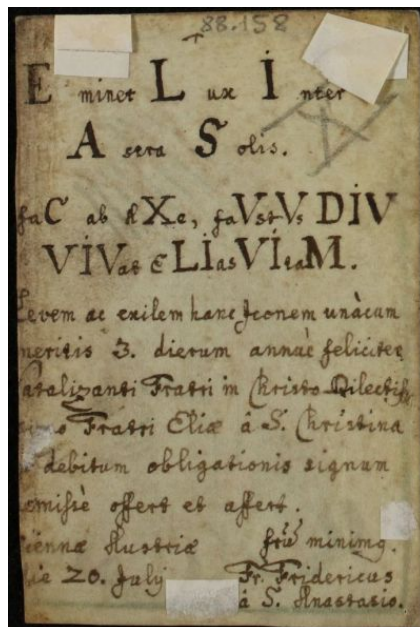 88.158
E minet L ux I nter
A stra S olis.
faC ab AXe, faVstVs DIV
VIVat ELIas VItaM.
Levem ac exilem hanc Iconem unàcum
meritis 3. dierum annuè feliciter
Natalizanti Fratri in Christo Dilectiss
Fratri Eliæ à S. Christina
debitum obligationis signum
offert et affert.
Viennæ Austriæ minimg.
Die 20. July Fr. Fridericus
à S. Anastasio.